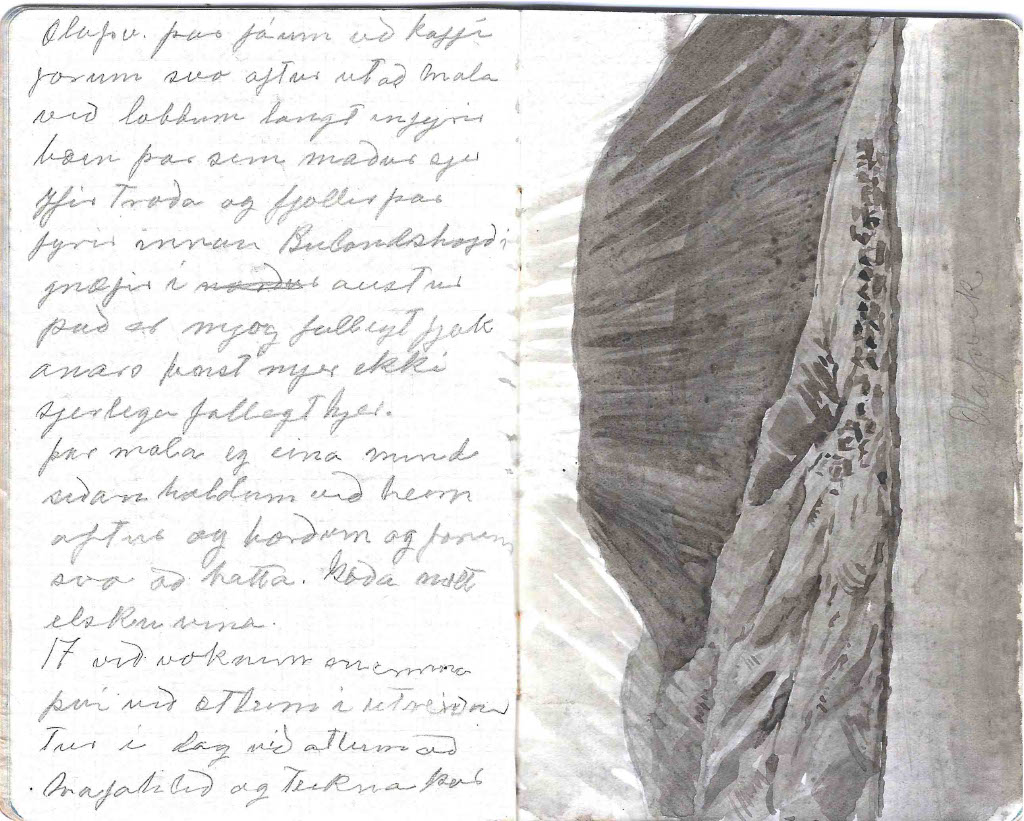 Olafsv. þar fáum við kaffi
forum svo aftur út að mala
við löbbum langt innfyrir
bæin þar sem maður sjer
yfir Fróða og fjöllin þar
fyrir innan Bulandshöfði
gnæfir í norður austur
það er mjög fallegt fjall
anars þikir mjer ekki
sjerlega fallegt hjer.
þar mala eg eina mind
siðan höldum við heim
aftur og borðum og forum
svo að hatta. Góða nótt
elsku vina.
17 við vöknum snemma
því við ætlum í útreiðar
tur í dag við ætlum að
Mafahlíð og teikna þar
Olafsvik